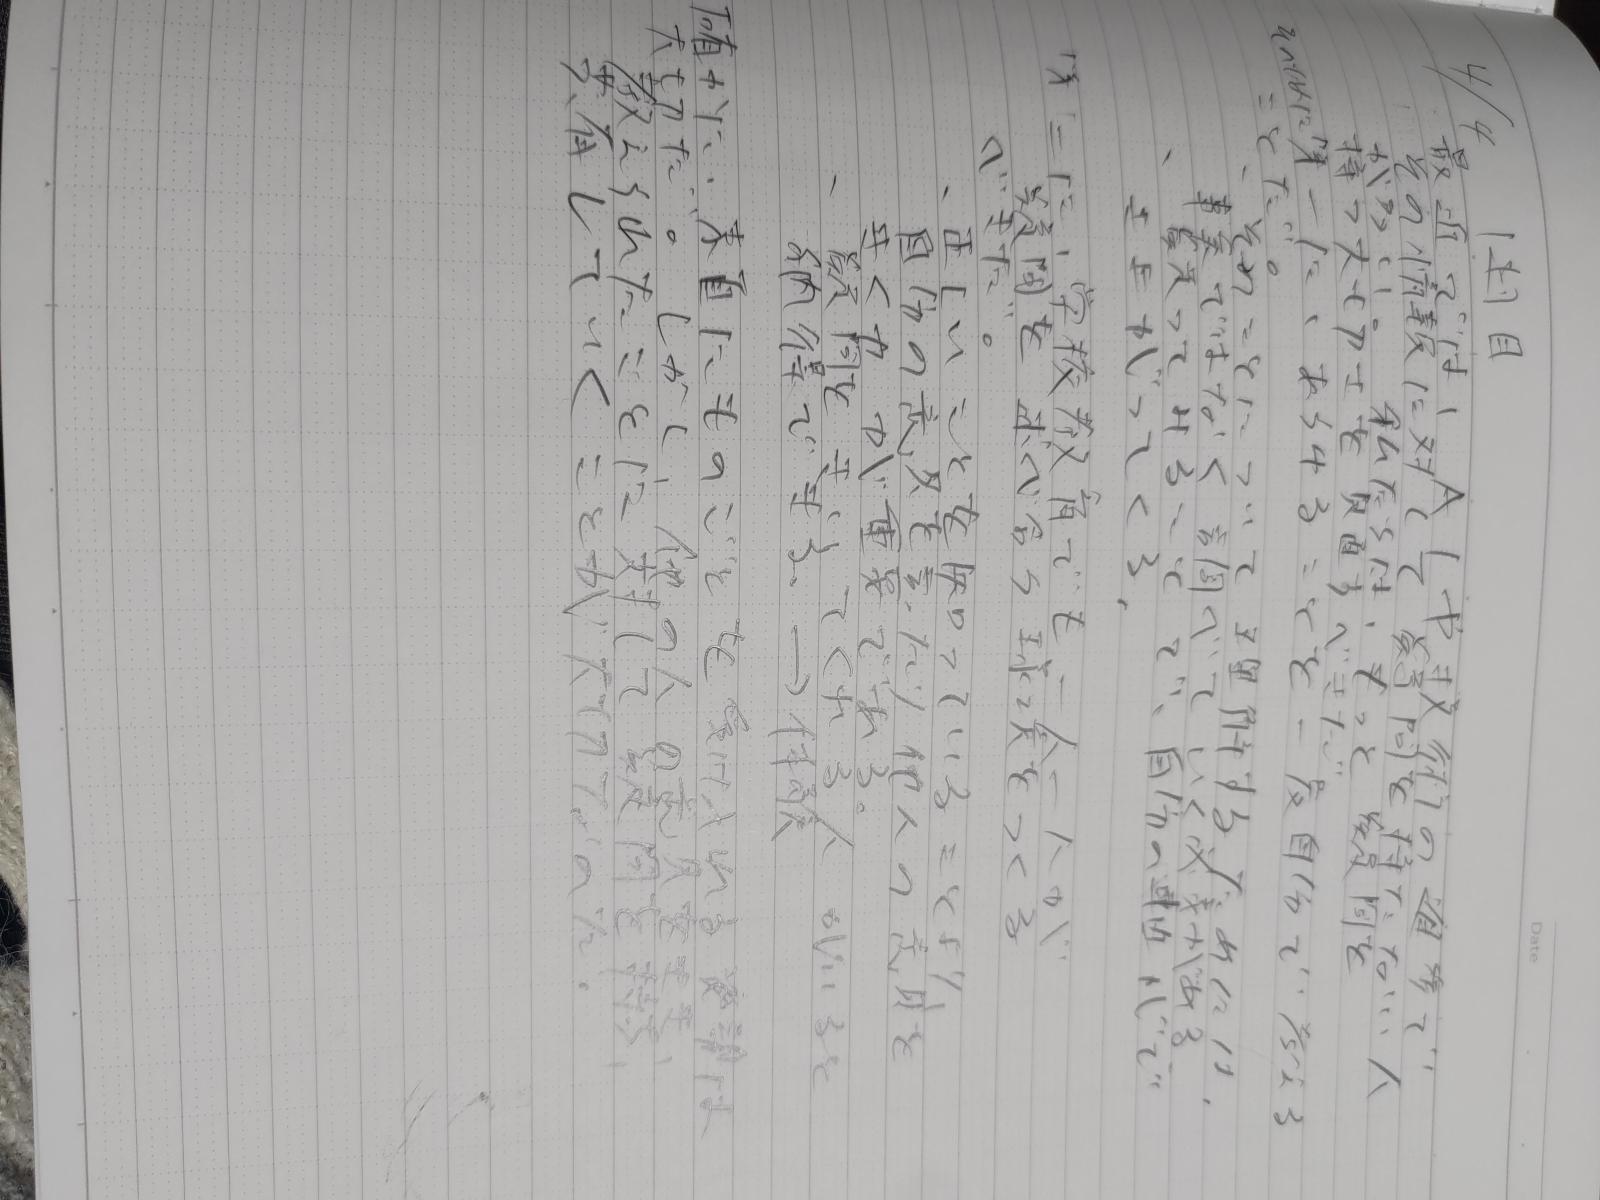 Date
4/4 1枚目
最近では、AIや技術の進歩で
その情報に対して疑問を持たない人
が多い。私たちは、もっと疑問を
持つ大切さを見直すべきだ。
第一に、あらゆることを一度自分で考える
ことだ。
、そのことについて理解するためには、
事実ではなく調べていく必要が出る
、 ことで、自分の
とまがってくる、
第二に、学校教育でも一人一人が
疑問を述べ合う環境をつくる
べきだ。
、正しいことを知っていることより、
自分の意見を言ったり他人の意見を
聞く力が重要である。
、疑問を てくれる人がいると
納得できる、→信頼
確かに、素直にものごとを受け入れる姿勢は
大切だ。しかし、他の人の意見や
教えられたことに対して疑問を持ち、
共有していくことが大切なのだ。